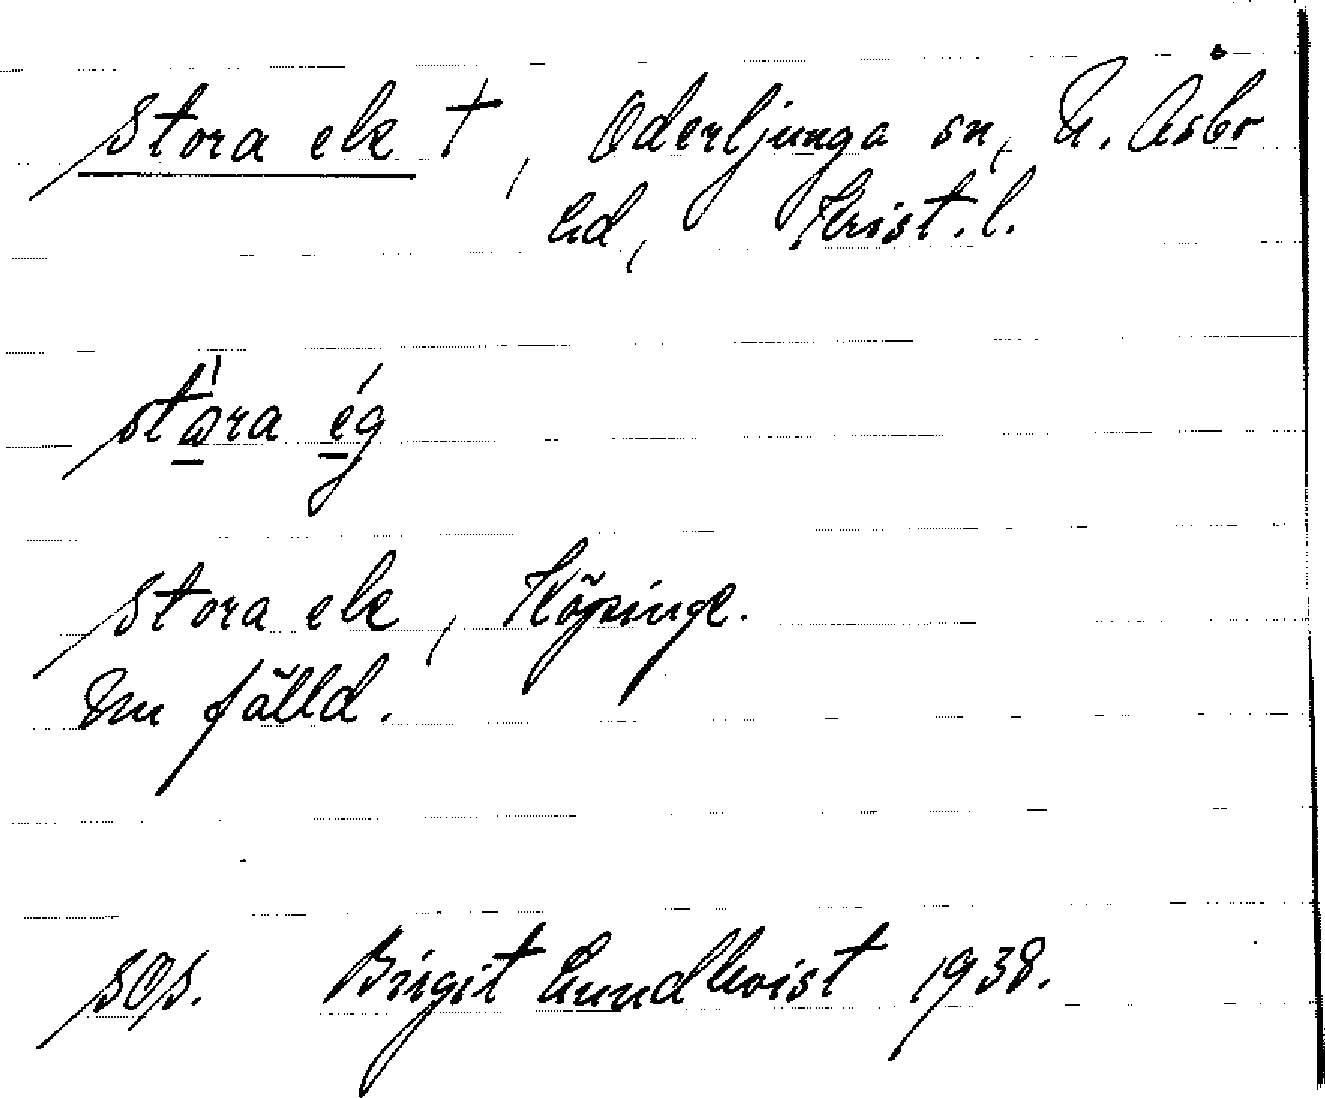 Stora ek †, Oderljunga sn, N. Åsbo
hd, Krist. l.
stɷ̱̀ra é̱g
Stora ek, Köpinge.
Nu fälld.
SOS. Birgit Lundkvist 1938.